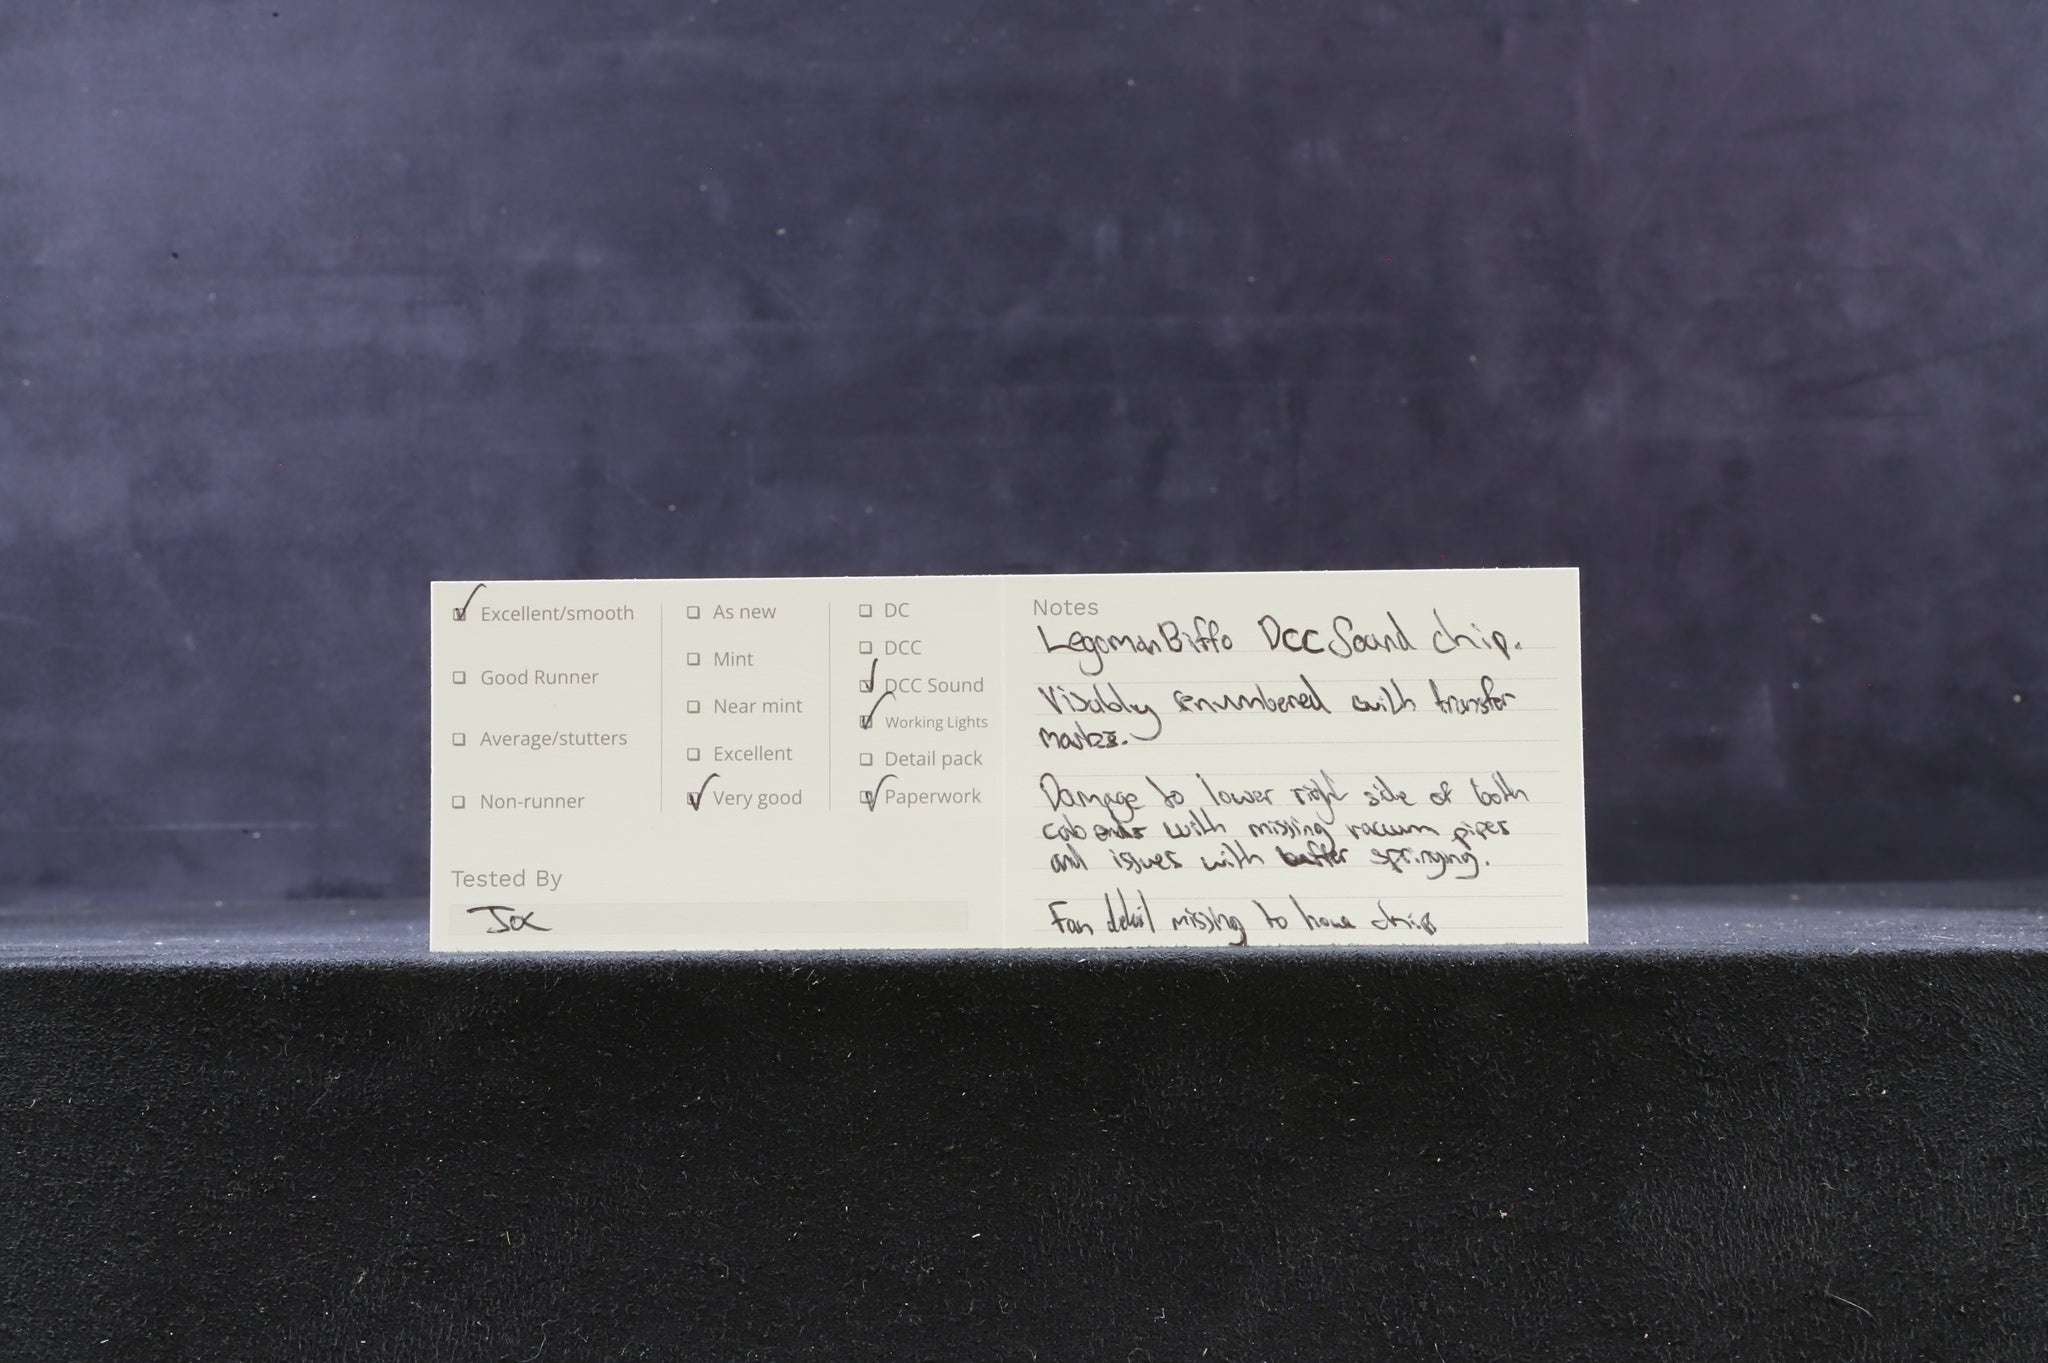 Excellent/smooth
Good Runner
Average/stutters
Non-runner
As new
Mint
Near mint
Excellent
Very good
DC
DCC
DCC Sound
Working Lights
Detail pack
Paperwork
Tested By
Joe
Notes
LegomanBiffo DCC Sound chip.
Visably renumbered with transfer
marks.
Damage to lower right side of both
cab ends with missing vacuum pipes
and issues with buffer springing.
Fan detail missing to house chip